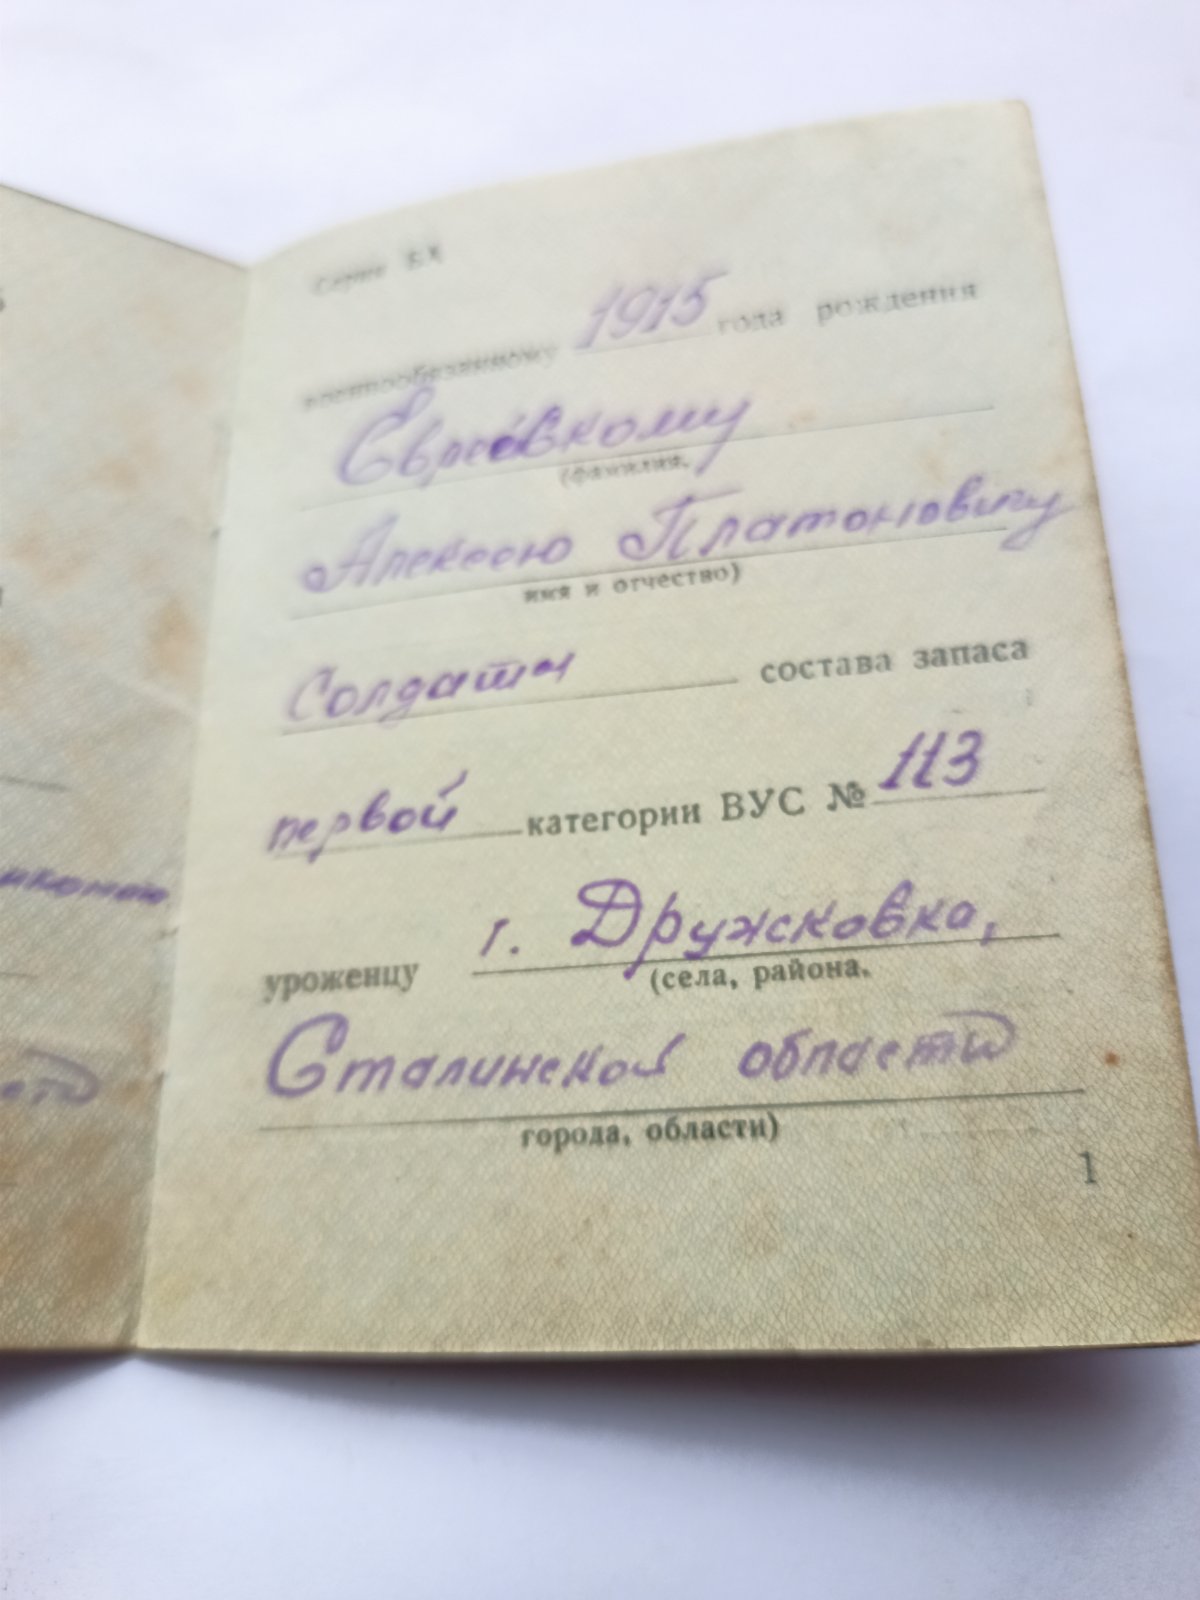 Серия БХ
военнообязанному 1915 года рождения
(фамилия,
Алексею Платоновичу
имя и отчество)
Солдатск состава запаса
первой категории ВУС № 113
уроженцу г. Дружковка,
(села, района,
Сталинской области
города, области)
1